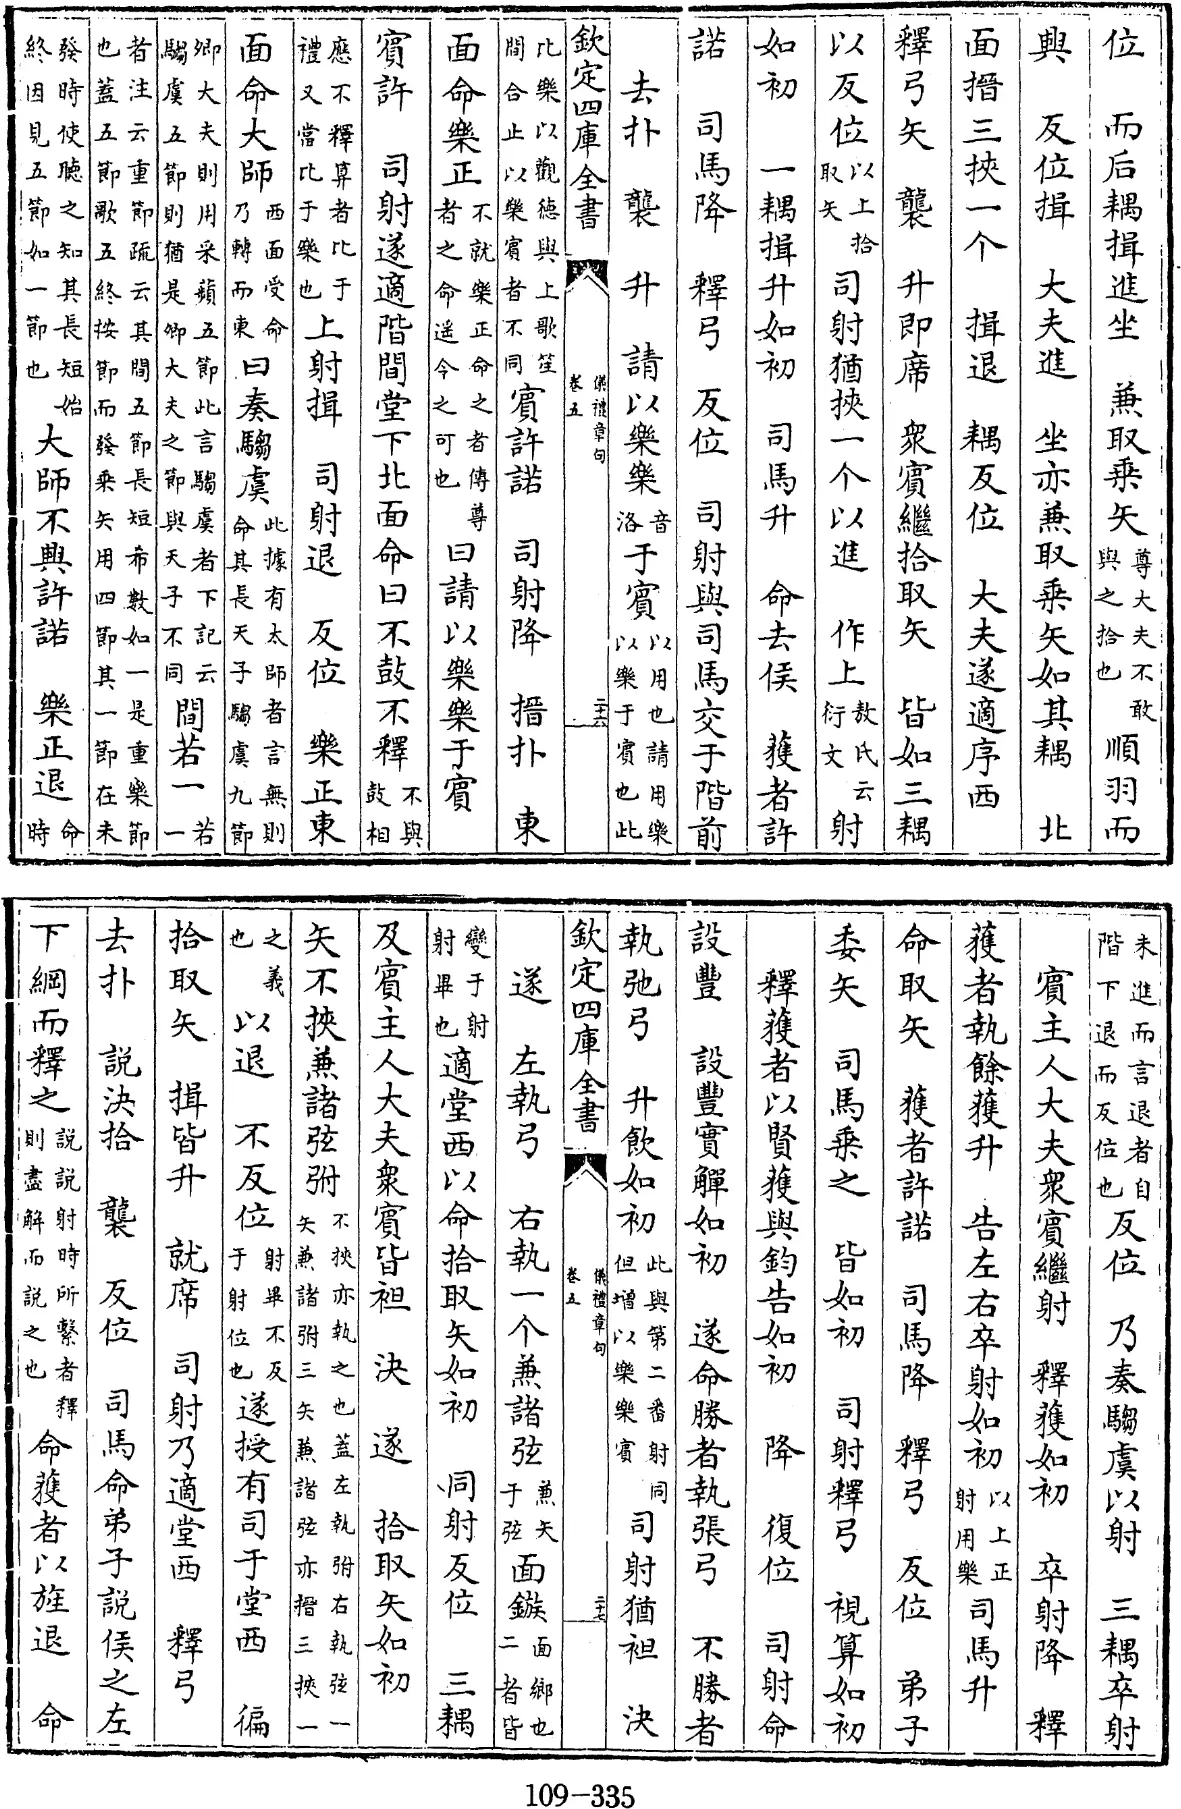 位　而后耦揖進坐　兼取乘矢尊大夫不敢與之拾也順羽而
興　反位揖　大夫進　坐亦兼取乘矢如其耦　北
面搢三挾一个　揖退　耦反位　大夫遂適序西
釋弓矢　襲　升即席　衆賓繼拾取矢　皆如三耦
以反位以上拾取矢　司射猶挾一个以進　作上敖氏云衍文射
如初　一耦揖升如初　司馬升　命去侯　獲者許
諾　司馬降　釋弓　反位　司射與司馬交于階前
去扑　襲　升　請以樂樂音洛于賓以用也請用樂以樂于賓也此
欽定四庫全書　儀禮章句卷五　二十六
比樂以觀德與上歌笙間合止以樂賓者不同賓許諾　司射降　搢扑　東
面命樂正不就樂正命之者傳尊者之命遥令之可也曰請以樂樂于賓
賓許　司射遂適階間堂下北面命曰不鼓不釋不與鼓相
應不釋算者比于禮又當比于樂也上射揖　司射退　反位　樂正東
面命大師西面受命乃轉而東曰奏騶虞此據有太師者言無則命其長天子騶虞九節
卿大夫則用采蘋五節此言騶虞者下記云騶虞五節則猶是卿大夫之節與天子不同間若一若一
者注云重節疏云其間五節長短希數如一是重樂節也蓋五節歌五終按節而發乘矢用四節其一節在未
發時使聽之知其長短始終因見五節如一節也大師不興許諾　樂正退命時
未進而言退者自階下退而反位也反位　乃奏騶虞以射　三耦卒射
賓主人大夫衆賓繼射　釋獲如初　卒射降　釋
獲者執餘獲升　告左右卒射如初以上正射用樂司馬升
命取矢　獲者許諾　司馬降　釋弓　反位　弟子
委矢　司馬乘之　皆如初　司射釋弓　視算如初
釋獲者以賢獲與鈞告如初　降　復位　司射命
設豐　設豐實觶如初　遂命勝者執張弓　不勝者
執弛弓　升飲如初此與第二番射同但增以樂樂賓司射猶袒　決
欽定四庫全書　儀禮章句卷五　二十七
遂　左執弓　右執一个兼諸弦兼矢于弦面鏃面鄉也二者皆
變于射射畢也適堂西以命拾取矢如初　司射反位　三耦
及賓主人大夫衆賓皆袒　決　遂　拾取矢如初
矢不挾兼諸弦弣不挾亦執之也蓋左執弣右執弦一矢兼諸弣三矢兼諸弦亦搢三挾一
之義也以退　不反位射畢不反于射位也遂授有司于堂西　徧
拾取矢　揖皆升　就席　司射乃適堂西　釋弓
去扑　説決拾　襲　反位　司馬命弟子説侯之左
下綱而釋之説説射時所繫者釋則盡解而説之也命獲者以旌退　命
109-335